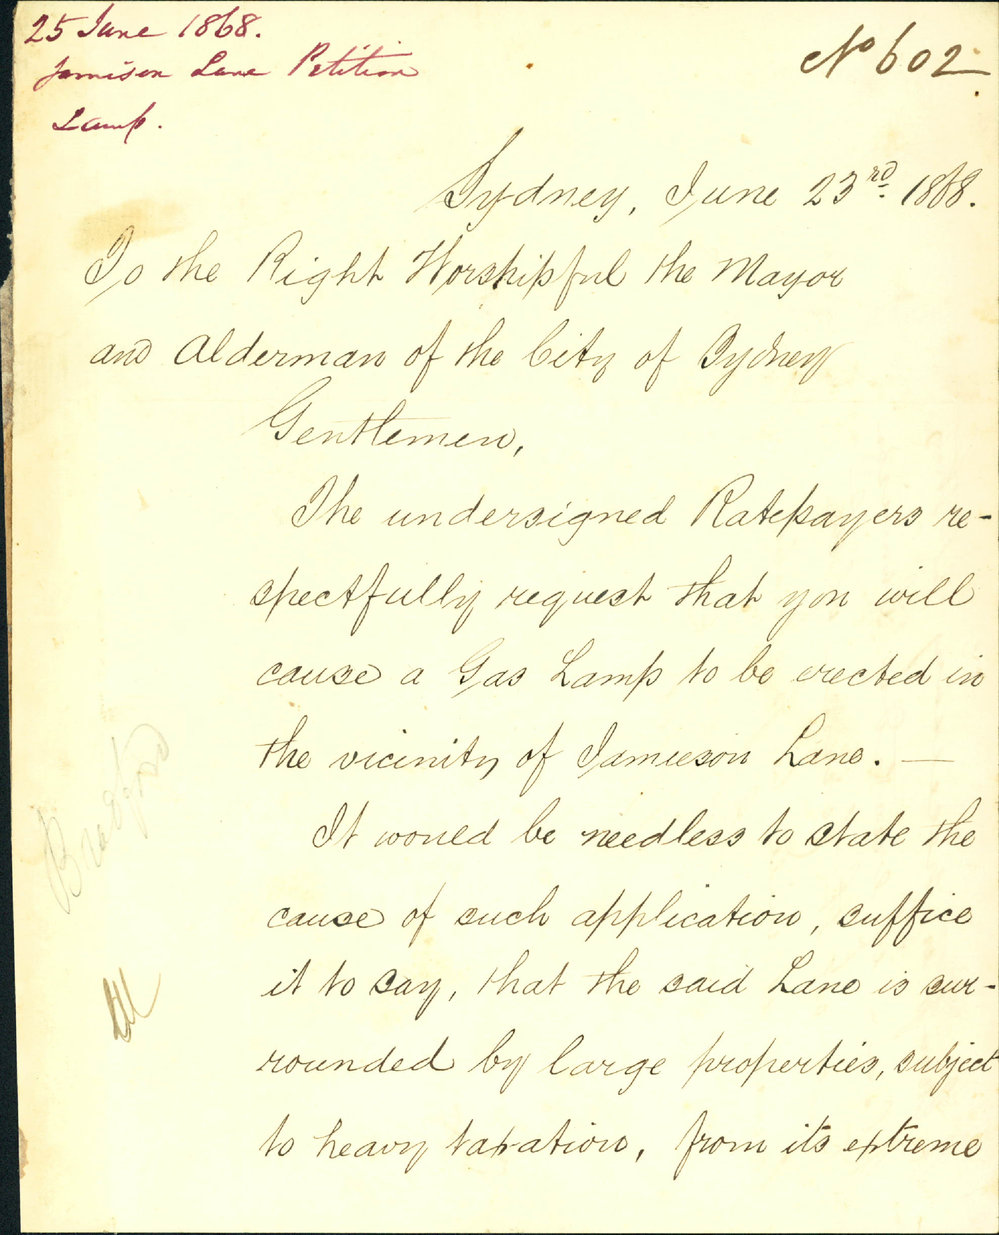 25 June 1868.
Jamison Lane Petition
Lamp.
No 602.
Sydney, June 23rd 1868.
To the Right Worshipful the Mayor
and Alderman of the City of Sydney
Gentlemen,
The undersigned Ratepayers re-
spectfully request that you will
cause a Gas Lamp to be erected in
the vicinity of Jamieson Lane. —
It would be needless to state the
cause of such application, suffice
it to say, that the said Lane is sur-
rounded by large properties, subject
to heavy taxation, from its extreme
Bradford